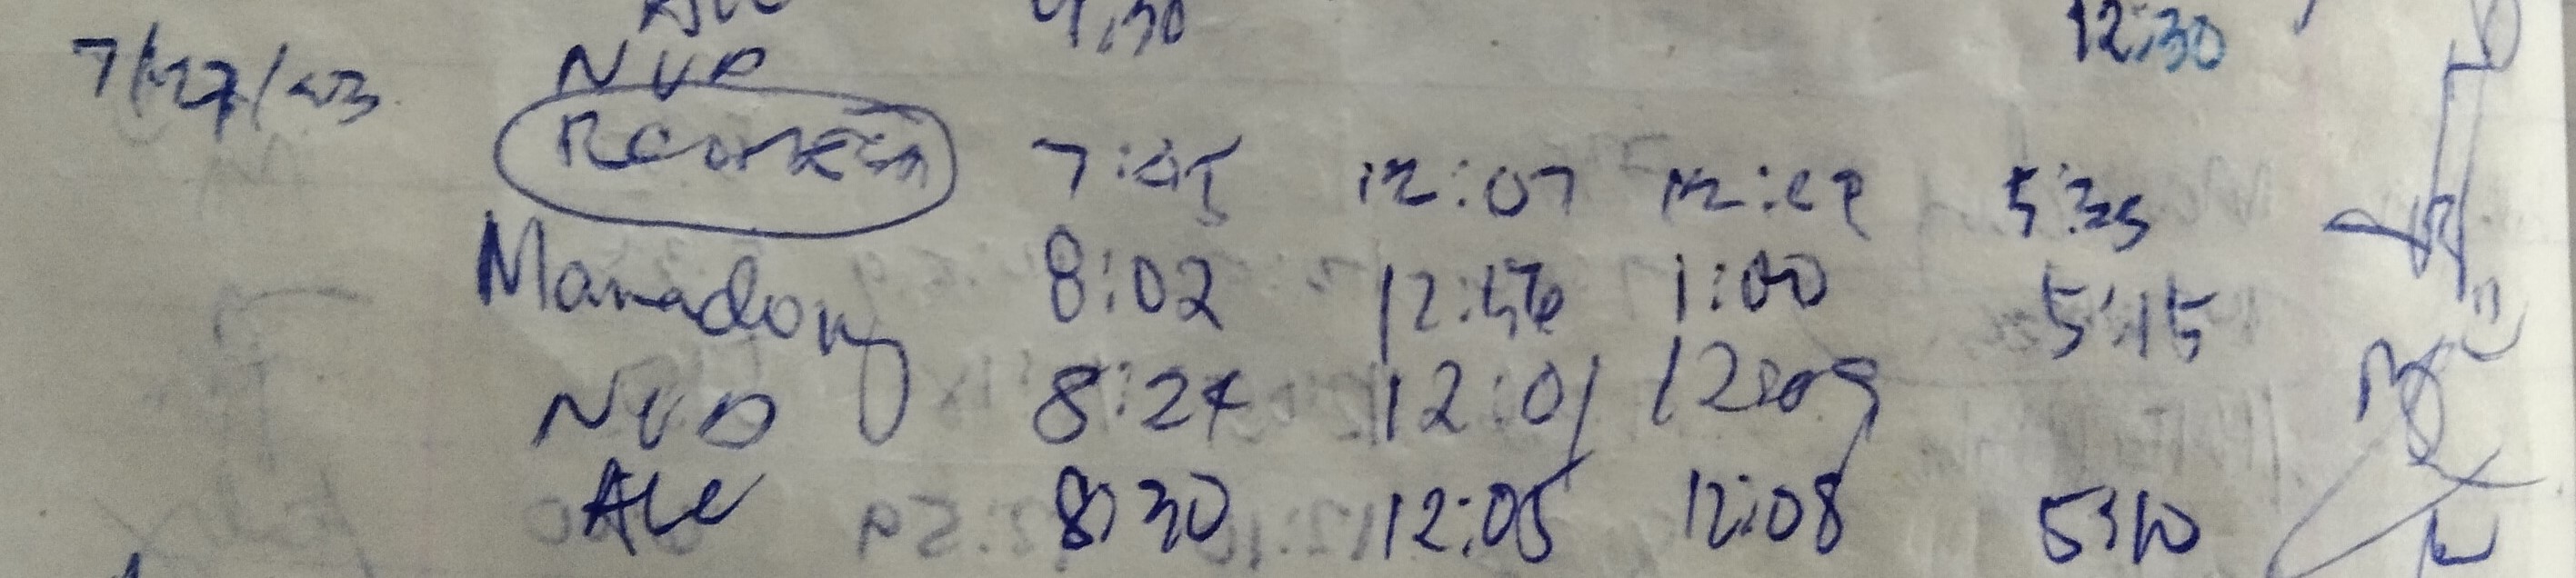 9:30 12:30
7/27/23 NVD
7:45 12:07 12: 5:35
Manadong 8:02 12:56 1:00 5:15
NVD 8:24 12:01 12:09
ALC 8:30 12:05 12:08 5:10